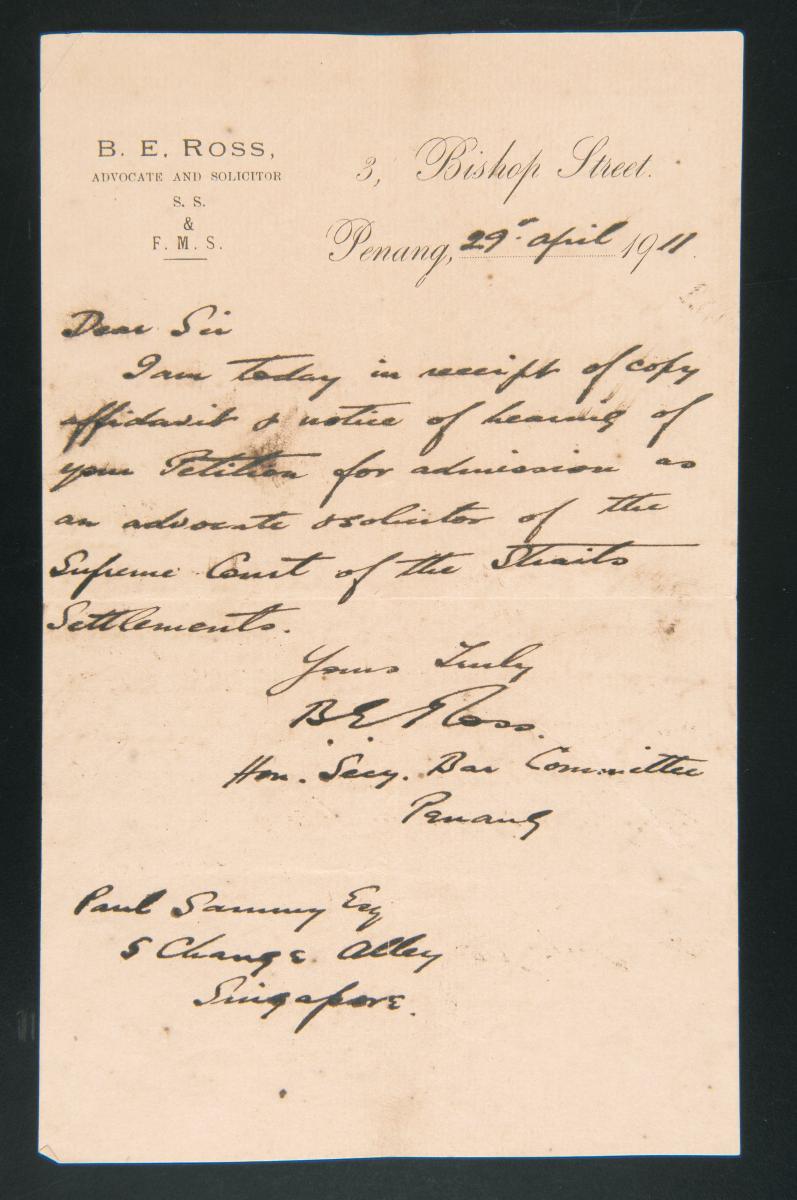 B. E. ROSS,
ADVOCATE AND SOLICITOR
S. S.
&
F. M. S.
3, Bishop Street.
Penang, 29r. April 1911.
Dear Sir
I am today in receipt of copy
affidavit & notice of hearing of
your Petition for admission as
an advocate & solicitor of the
Supreme Court of the Straits
Settlements.
Yours Truly
B E Ross.
Hon. Secy. Bar Committee
Penang
Paul Sammy Esq
5 Change Alley
Singapore.